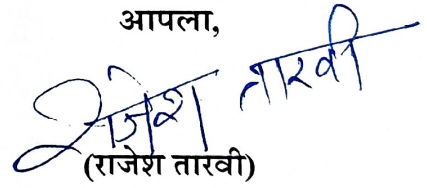 आपला,
राजेश तारवी
(राजेश तारवी)